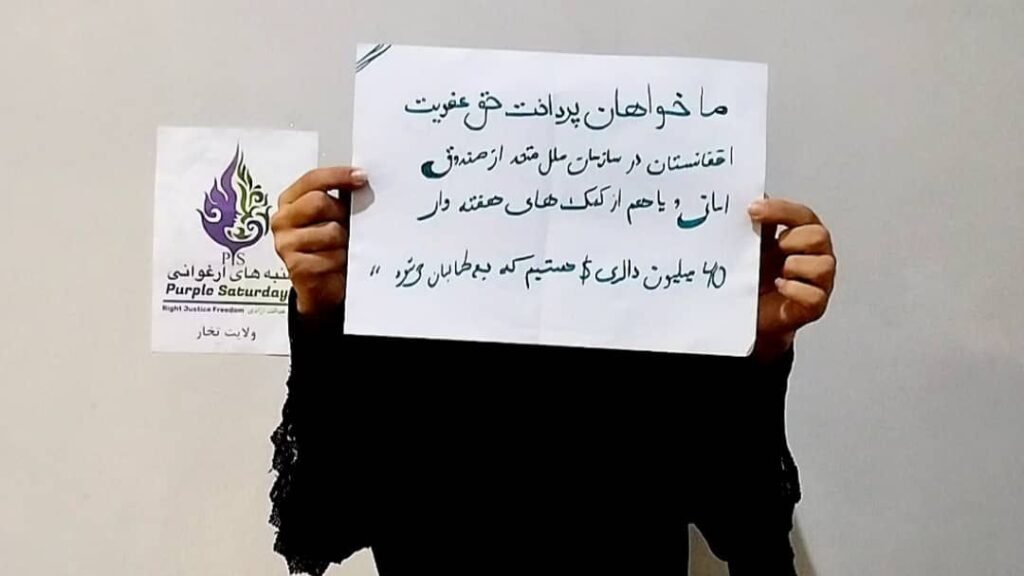 ما خواهان پرداخت حق عضویت
افغانستان در سازمان ملل متحد از صندوق
امانی و یا هم از کمک های هفته وار
۴۰ میلیون دالری $ هستیم که به طالبان میشود "
PJS
شنبه های ارغوانی
Purple Saturday
Right Justice Freedom عدالت آزادی
ولایت تخار